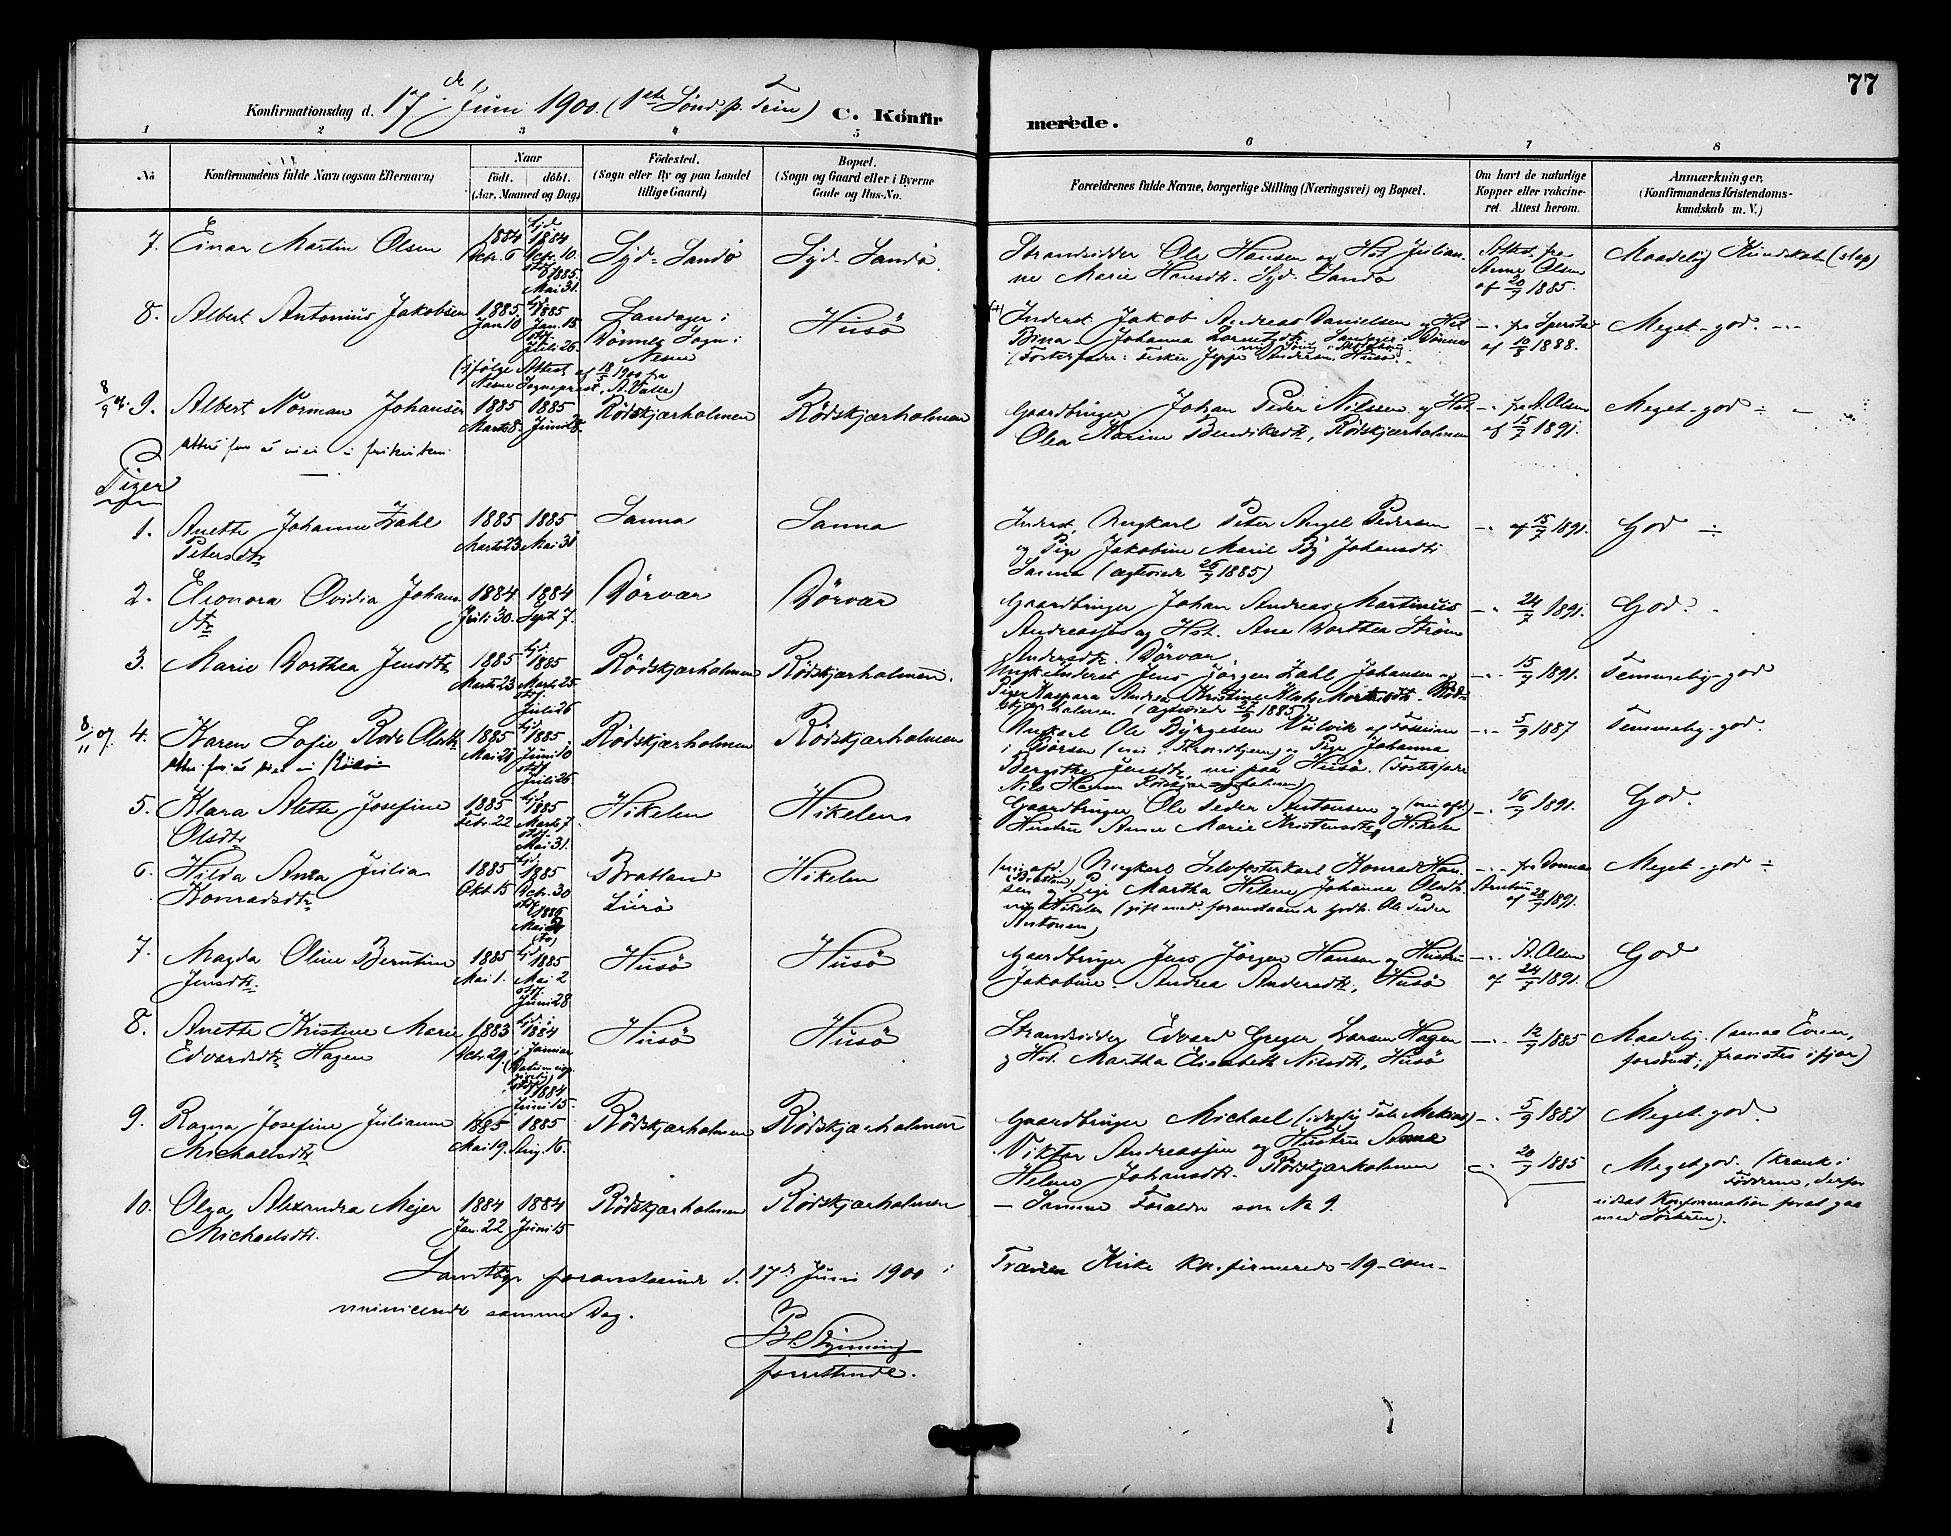 77
Konfirmationsdag d. 17de Juni 1900. (1ste Sönd. p. Trin) C. Konfirmerede.
1 2 3 4 5 6 7 8
No
Konfirmandens fulde Navn (ogsaa Efternavn)
Naar
födt. döbt.
(Aar, Maaned og Dag)
Födested.
(Sogn eller By og paa Landet
tillige Gaard)
Bopæl.
(Sogn og Gaard eller i Byerne
Gade og Hus-No.
Forældrenes fulde Navne, borgerlige Stilling (Næringsvei) og Bopæl.
Om havt de naturlige
Kopper eller vakcine-
ret. Attest herom.
Anmærkninger,
(Konfirmandens Kristendoms-
kundskab m. V.)
7. Einar Martin Olsen
1884 Octr. 6
hjd. 1884 Octr. 10. stdf. 1885. Mai 31.
Syd-Sandö
Syd-Sandö.
Strandsidder Ole Hansen og Hst. Julian-
ne Marie Hansdtr. Syd-Sandö
Attest fra Anna Olsen af 20/9 1885.
Maadelig Kundskab (slap)
8. Albert Antonius Jakobsen
1885. Jan. 10
hjd. 1885 Jan. 15 stdf. Juli 26.
Landager i
Dönnes Sogn i
Nesne
(ifölge Attest af 18/5 1900 fra
Nesne Sognepræst, A. Valle)
Husö
Inderst Jakob Andreas Danielsen og Hst.
Bina Johanna
(Fosterfader: Fisker Jeppe Andersen, Husö.
-"- fra Sperstad af 10/8 1888.
Meget-god. -"-
9. Albert Norman Johansen
1885 Marts 8.
1885 Juni 28.
Rödskjærholmen
Rödskjærholmen
Gaardbruger Johan Peder Nilssen og Hst.
Olea Karine Bendiksdtr, Rödskjærholmen
-"- fra A. Olsen af 15/7 1891.
Meget-god
Piger
1. Anette Johanne Zahl
Petersdtr
1885 Marts 23
1885 Mai 31
Sanna
Sanna
Inderst, Ungkarl Peter Angel Pedersen
og Pige Jakobine Marie By Johansdtr
Sanna (ægteviede 26/9 1885)
-"- af 15/7 1891.
God
2. Eleonora Ovidia Johans-
dtr
1884. Juli 30.
1884 Sept 7.
Dörvær
Dörvær
Gaardbruger Johan Andreas Martinus
Andreassen og Hst. Ane Dorthea Ström
Andersdtr. Dörvær.
-"- 24/7 1891.
God.
3. Marie Dorthea Jensdtr
1885 Marts 23
hjd. 1885 Marts 25 stdf. Juli 26
Rödskjærholmen
Rödskjærholmen.
Ungk. Inderst Jens Jörgen Zahl Johansen og
Pige Kaspara Andrea Kristine Mortensdtr. Röd-
skjærholmen. (ægteviede 27/9 1885)
-"- 15/7 1891.
Temmelig-god
8/11 07. 4. Karen Sofie Rode Olsdtr
1885 Mai 28
hjd. 1885 Juni 10 stdf. Juli 26
Rödskjærholmen
Rödskjærholmen
Ungkarl Ole Börgesen Vulvik af
i Börsen (nu i Throndhjem) og Pige Johanna
Bergithe Jensdtr, nu paa Husö. (Fosterfader
Nils Hansen Rödskjærholmen)
-"- 5/9 1887
Temmelig-god.
5. Klara Alette Josefine
Olsdtr
1885 Febr. 22
hjd. 1885 Marts 7 stdf. Mai 31.
Hikelen
Hikelen
Gaardbruger Ole Peder Antonsen og (nu afd.)
Hustru Anne Marie Kristensdtr, Hikelen
-"- 16/9 1891.
God.
6. Hilda Anna Julia
Konradsdtr
1885 Okt. 15
hjd. 1885 Octr. 30 stdf. 1886 Mai
Bratland
Lurö
Hikelen
(nu afd.) Ungkarl Selvfosterkarl Konrad Han-
sen og Pige Martha Helene Johanna Olsdtr.
nu Hikelen (gift med foranstaaende Gaardb. Ole Peder
Antonsen)
-"- fra Dönnæs af 28/9 1891.
Meget-god
7. Magda Oline Berntine
Jensdtr.
1885 Mai 1.
hjd. 1885 Mai 2 stdf. Juni 28
Husö
Husö
Gaardbruger Jens Jörgen Hansen og Hustru
Jakobine Andrea Andersdtr, Husö
-"- A. Olsen af 24/7 1891.
God
8. Anette Kristine Marie
Edvardsdtr Hagen
1883 Octr. 29.
hjd. 1884 i Januar stdf. 1884 Juni 15.
Husö
Husö
Strandsidder Edvard Greger Larsen Hagen
og Hst. Martha Elisabeth Nilsdtr, Husö
-"- 12/9 1885
Maadelig. (smaa Evner,
forsömt, fravistes ifjor)
9. Ragna Josefine Julianne
Michaelsdtr
1885 Mai 9.
1885 Aug. 16.
Rödskjærholmen
Rödskjærholmen
Gaardbruger Michael (i daglig Tale Mekras)
Viktor Andreassen og Hustru Anne
Helene Johansdtr. Rödskjærholmen
-"- 5/9 1887
Meget-god.
10. Olga Alexandra Mejer
Michaelsdtr.
1884 Jan. 22
1884 Juni 15
Rödskjærholmen
Rödskjærholmen
— Samme Forældre som No 9.
-"- 20/9 1885
Meget god. (Krank i
Födderne, derfor
udsat Konfirmation forat gaa
med Sösteren).
Samtlige foranstaaende d. 17de Juni 1900 i Trænen Kirke konfirmerede -19- com-
municerede samme Dag.
forrettende.